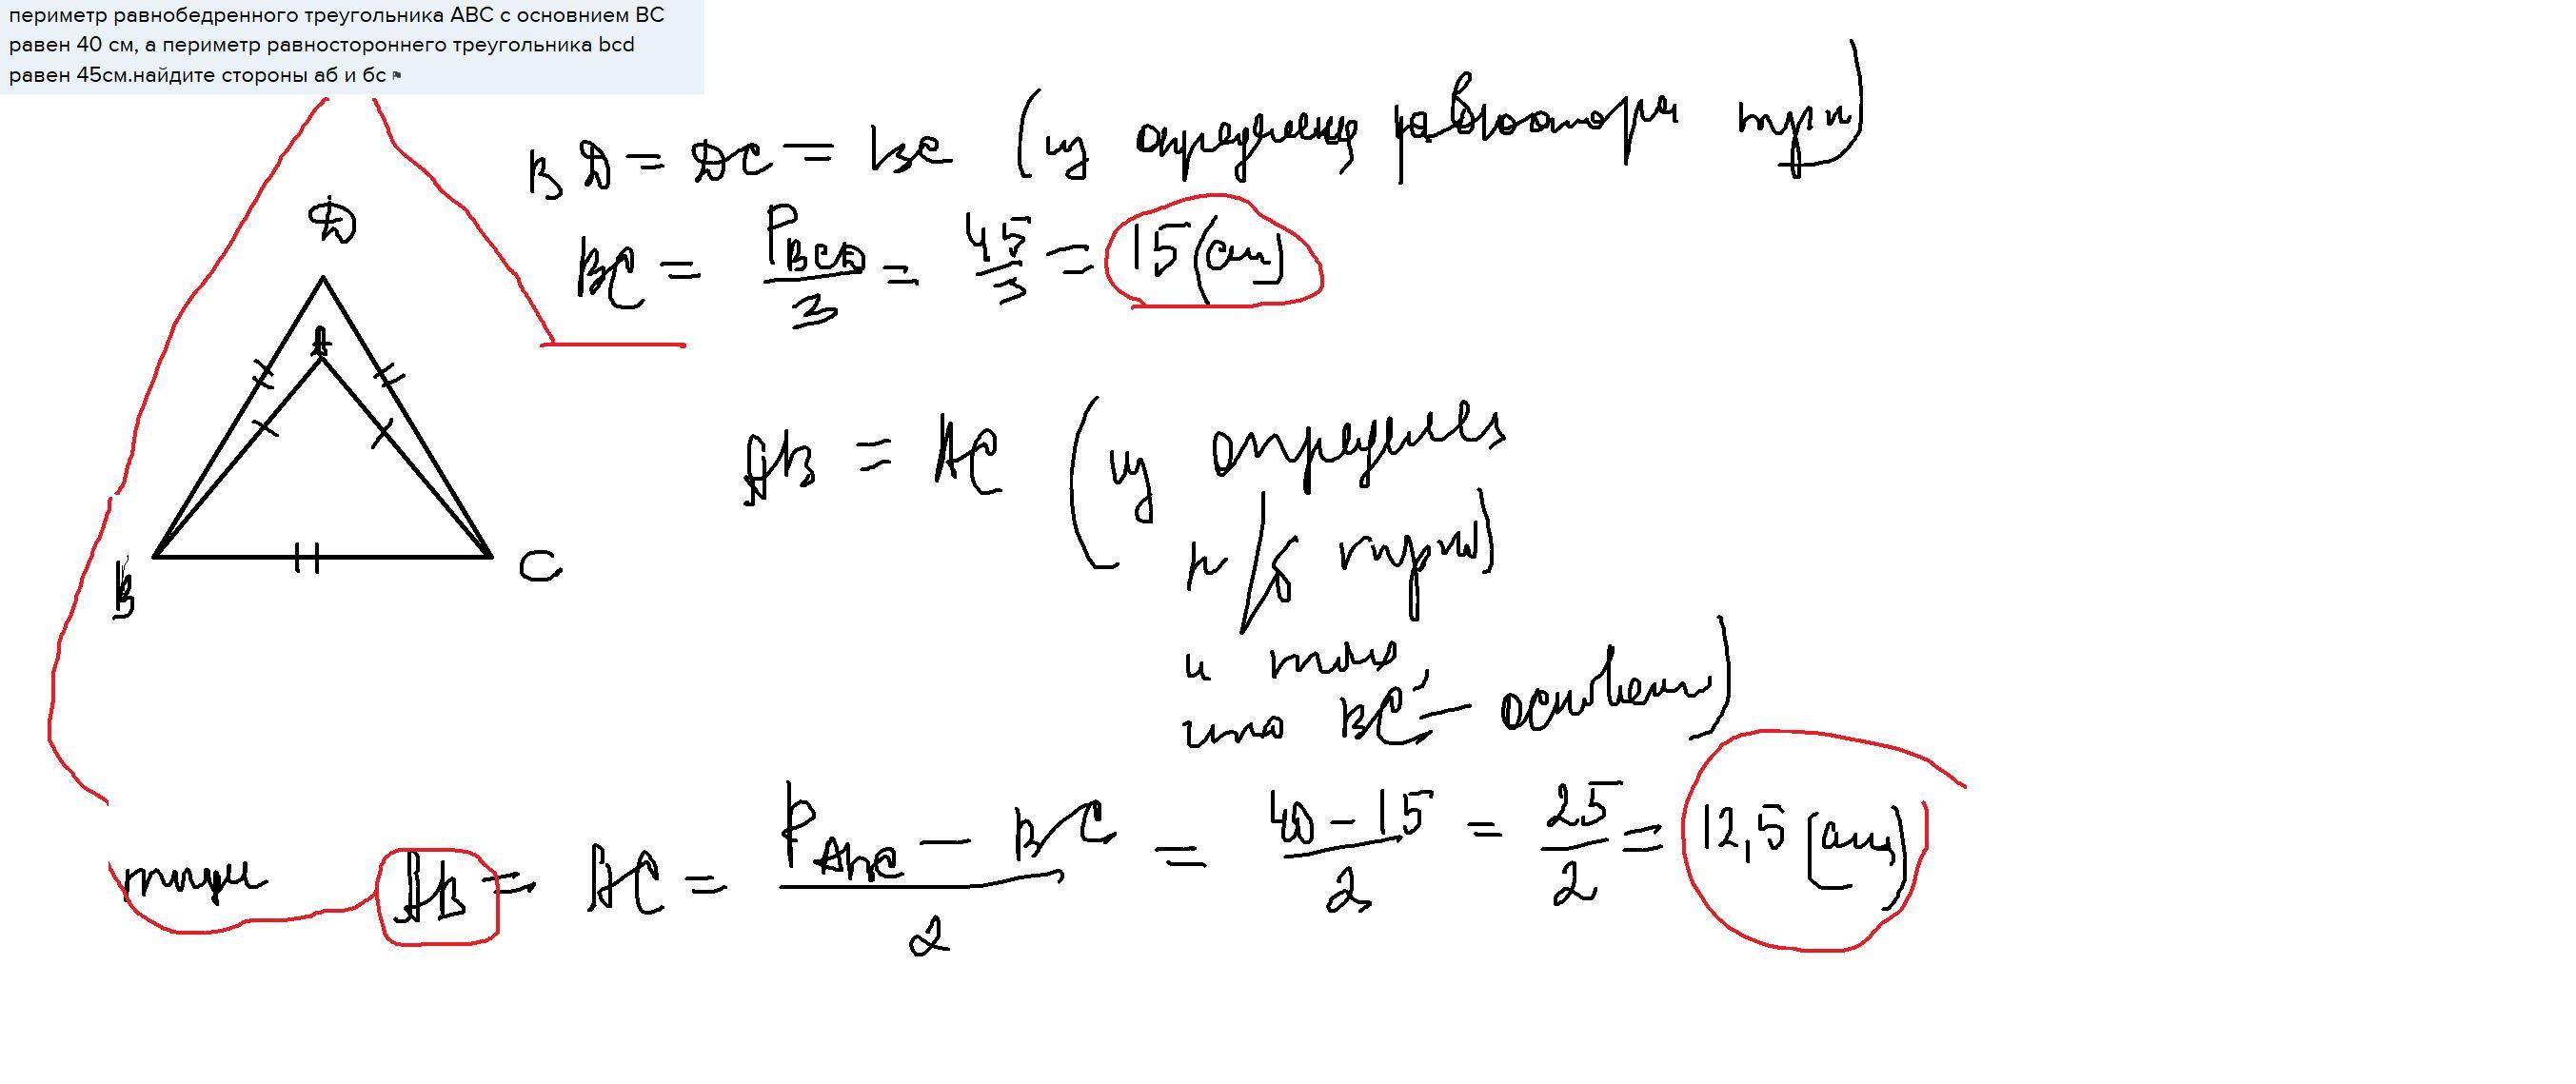 периметр равнобедренного треугольника ABC с основнием BC
равен 40 см, а периметр равностороннего треугольника bcd
равен 45см.найдите стороны аб и бс
BD = DC = BC (из определения равностор треу)
D
BC = P BCD / 3 = 45 / 3 = 15 (см)
A
AB = AC (из определения
р/б треуг)
B
C
и того,
что BC - основание)
тогда AB = AC = (P ABC - BC) / 2 = (40 - 15) / 2 = 25 / 2 = 12,5 (см)